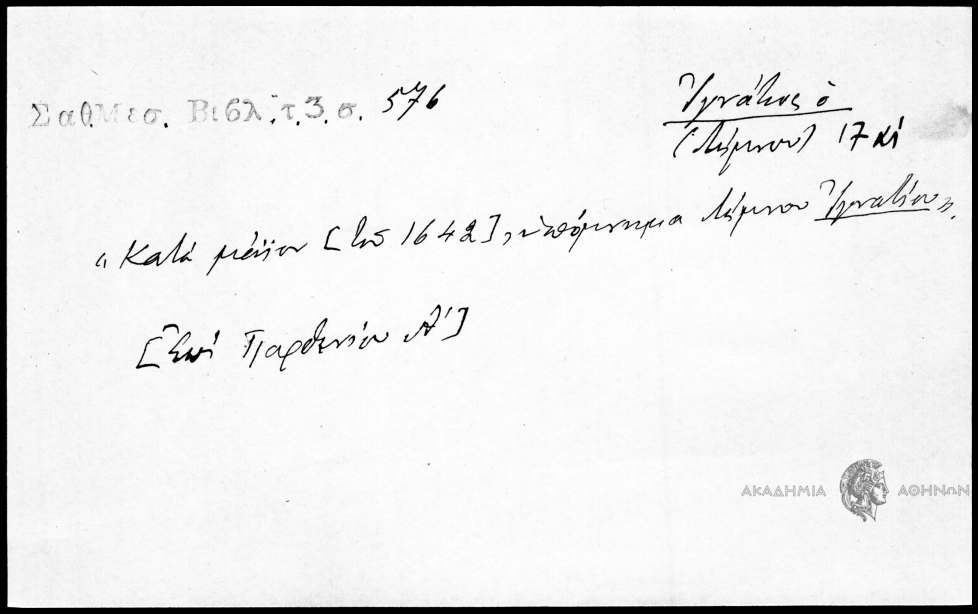 Σαθ. Μεσ. Βιβλ. τ. 3. σ. 576
Ἰγνάτιος ὁ
(Λήμνου) 17 αἰ
"Κατά μάϊον [τοῦ 1642], ὑπόμνημα Λήμνου Ἰγνατίου".
[Ἐπί Παρθενίου Α']
ΑΚΑΔΗΜΙΑ ΑΘΗΝΩΝ